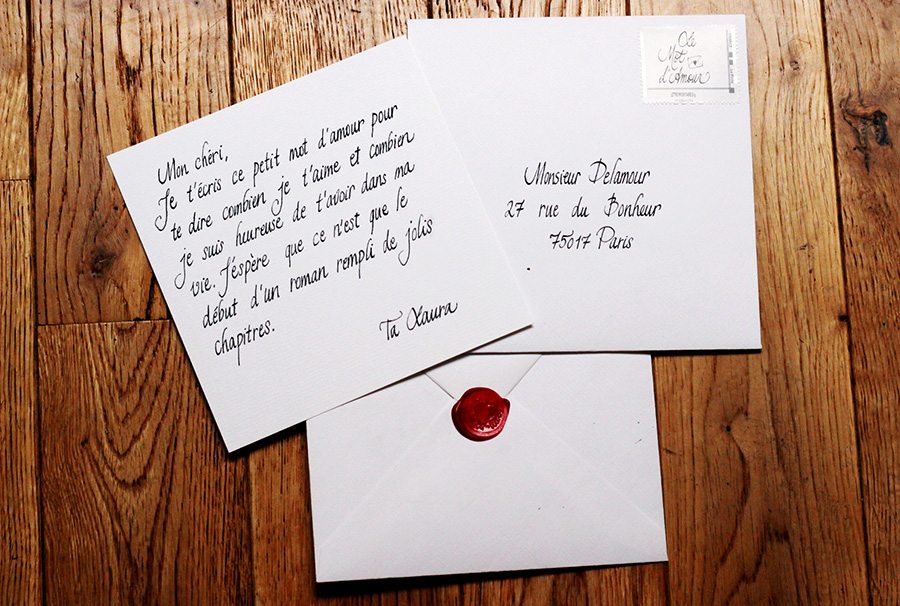 Mon chéri,
Je t'écris ce petit mot d'amour pour
te dire combien je t'aime et combien
je suis heureuse de t'avoir dans ma
vie. J'éspère que ce n'est que le
début d'un roman rempli de jolis
chapitres.
Ta Laura
Mot
d'Amour
Monsieur Delamour
27 rue du Bonheur
75017 Paris